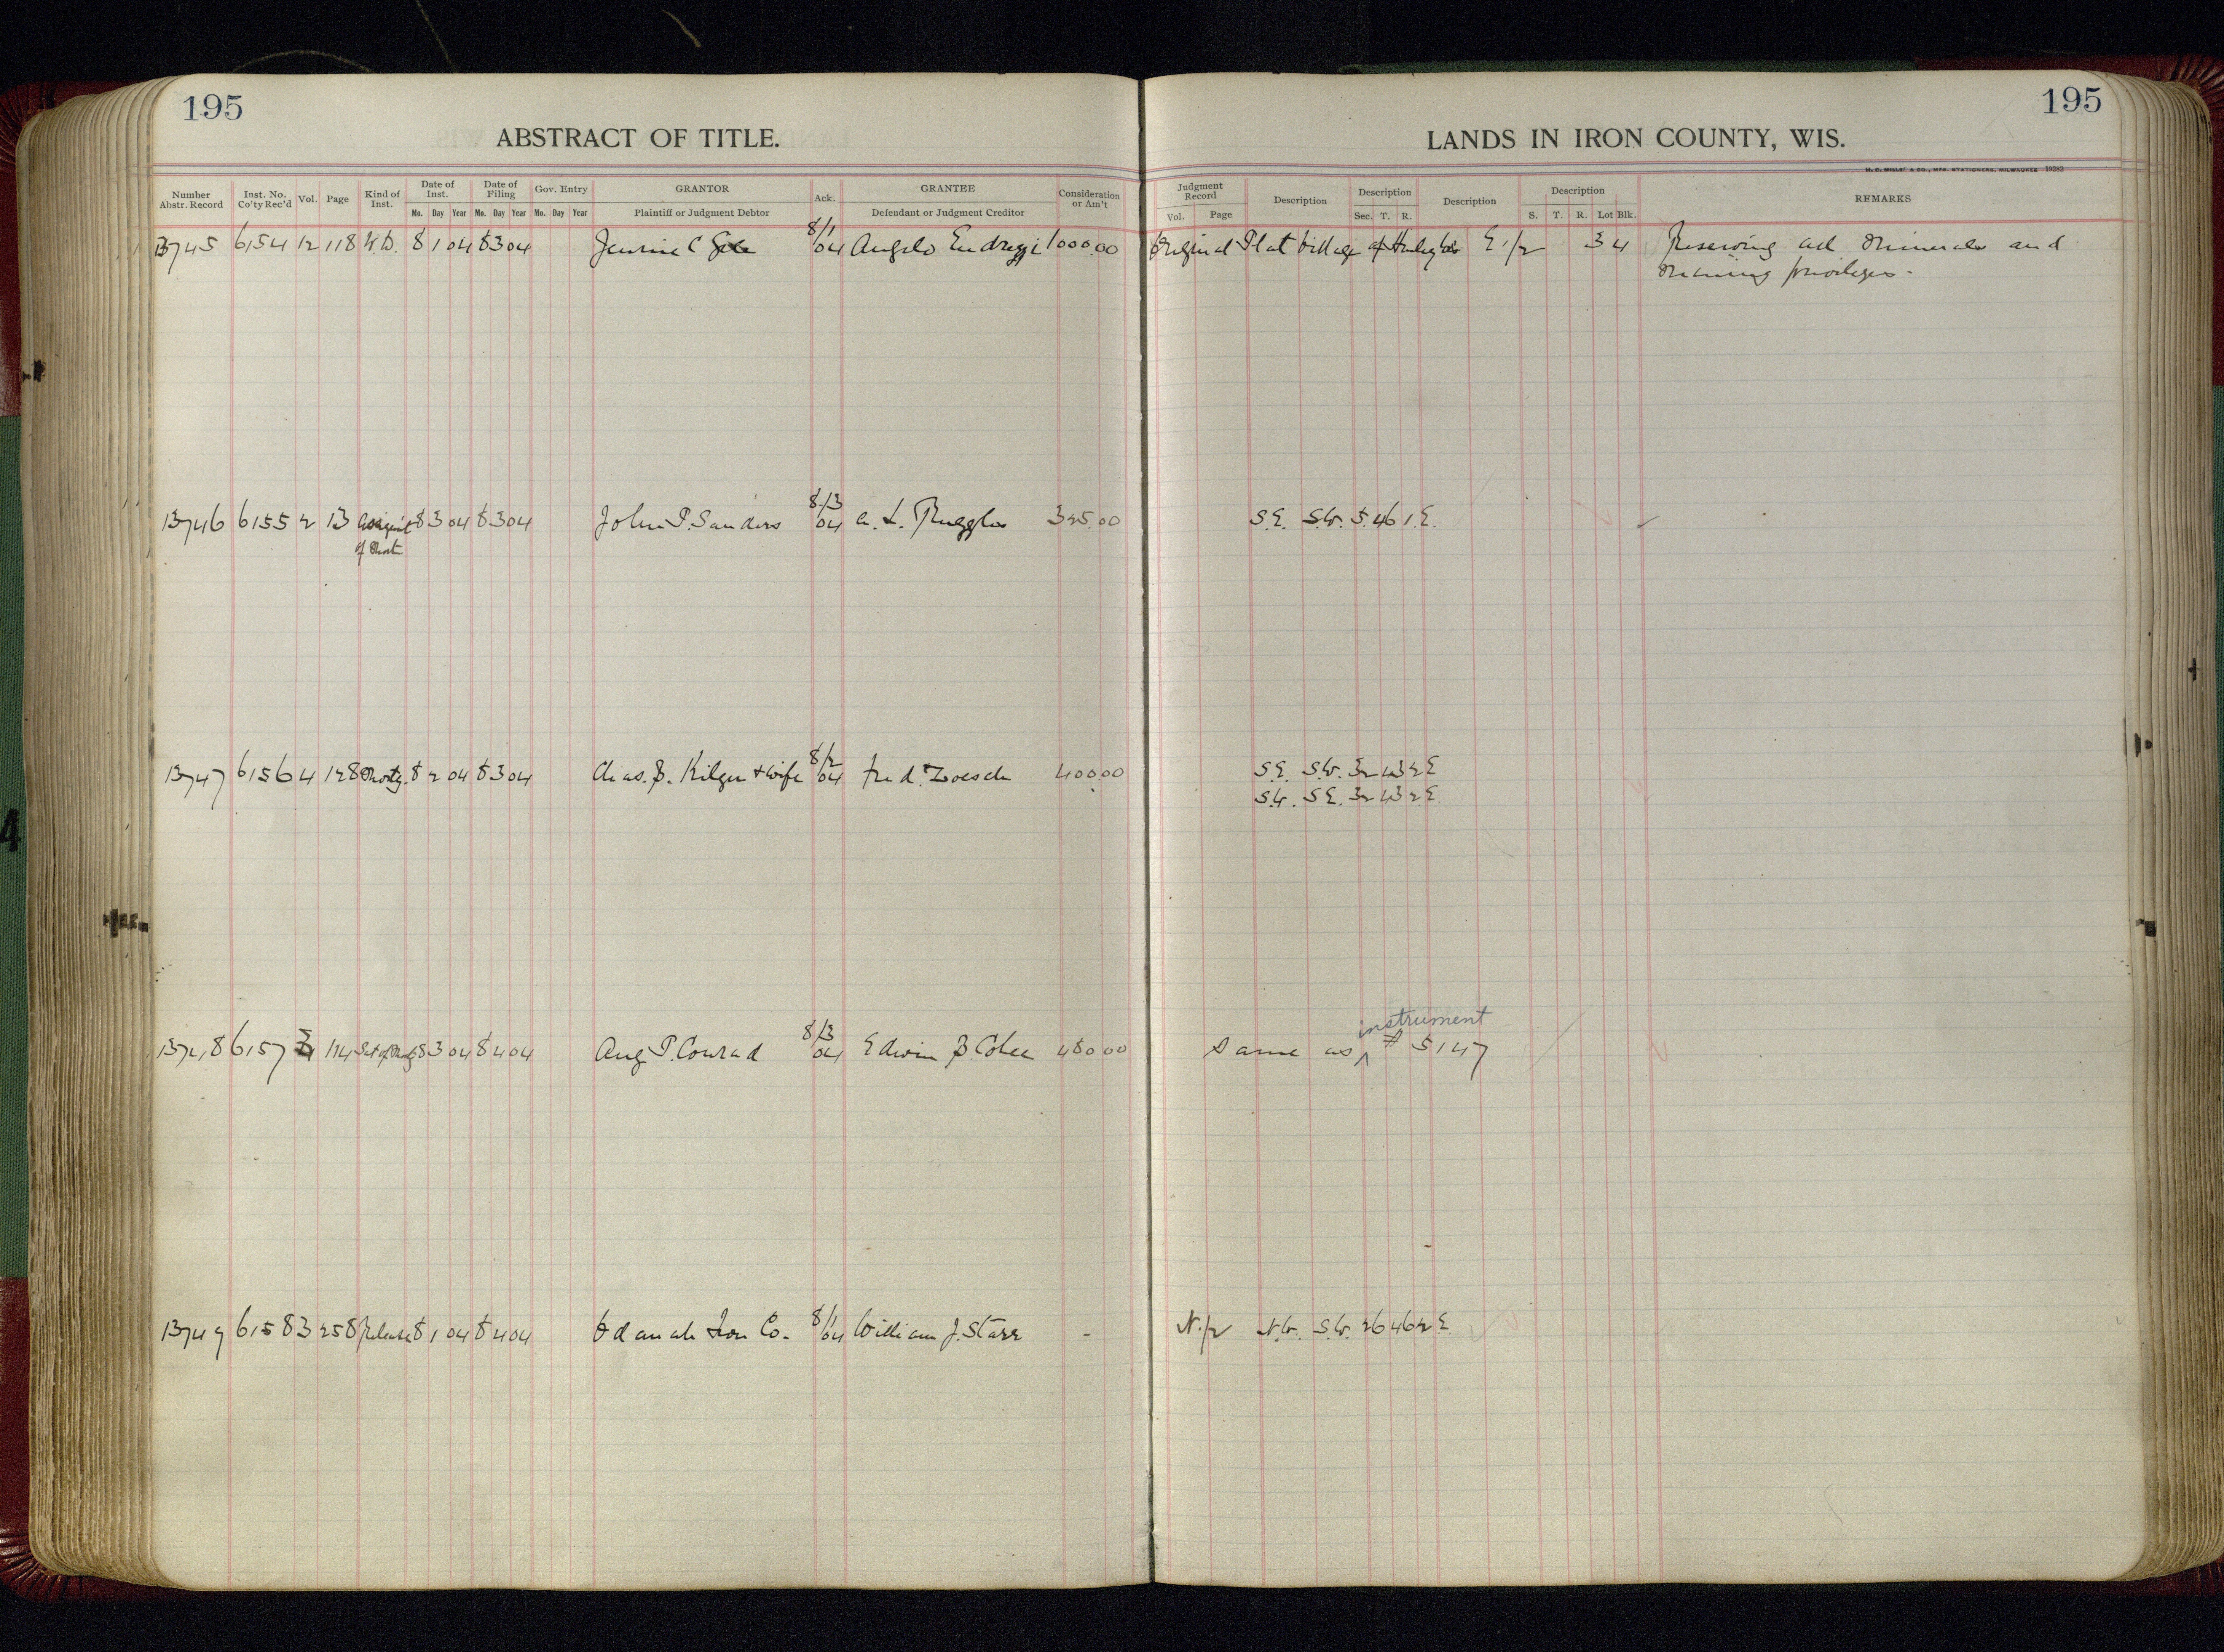 195
195
ABSTRACT OF TITLE.
LANDS IN IRON COUNTY, WIS.
H. C. MILLER & CO., MFG. STATIONERS, MILWAUKEE 19283
Number Abstr. Record Inst. No. Co'ty Rec'd Vol. Page Kind of Inst. Date of Inst. Date of Filing Gov. Entry GRANTOR Ack. GRANTEE Consideration or Am't Judgment Record Description Description Description Description REMARKS
Mo. Day Year Mo. Day Year Mo. Day Year Plaintiff or Judgment Debtor Defendant or Judgment Creditor Vol. Page Sec. T. R. S. T. R. Lot Blk.
13745 6154 12 118 W.D. 8 1 04 8 3 04 Jennie C Gile 8/1 04 Angelo Endrizzi 1000.00 Original Plat Village of Hurley E 1/2 3 4 Reserving all minerals and
mining privileges -
13746 6155 2 13 Assign't 8 3 04 8 3 04 John P. Sanders 8/3 04 A. L. Ruggles 325.00 S.E. S.W. 5. 46 1. E.
of
13747 6156 4 128 Mortg. 8 2 04 8 3 04 Chas. B. Kilger & wife 8/2 04 Fred Loesch 400.00 S.E. S.W. 32 43 2 E
S.W. S.E. 32 43 2 E.
instrument
13748 6157 3 114 Sat of Mtg 8 3 04 8 4 04 Aug P. Conrad 8/3 04 Edwin B. 480 00 Same as ^ # 5147
13749 6158 3 258 Release 8 1 04 8 4 04 Odanah Iron Co. 8/1 04 William J. Starr - N. 1/2 N.W. S.W. 26 46 2 E.